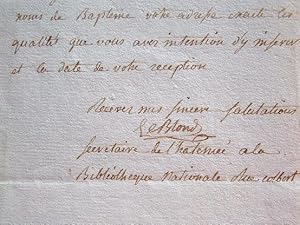 noms de Baptême votre adresse exacte les
qualités que vous avez intention d'y inserer
et la date de votre reception
Recevez mes sincere salutations
LeBlond
secretaire de l'hatenée a la
Bibliotheque Nationale Rue colbert